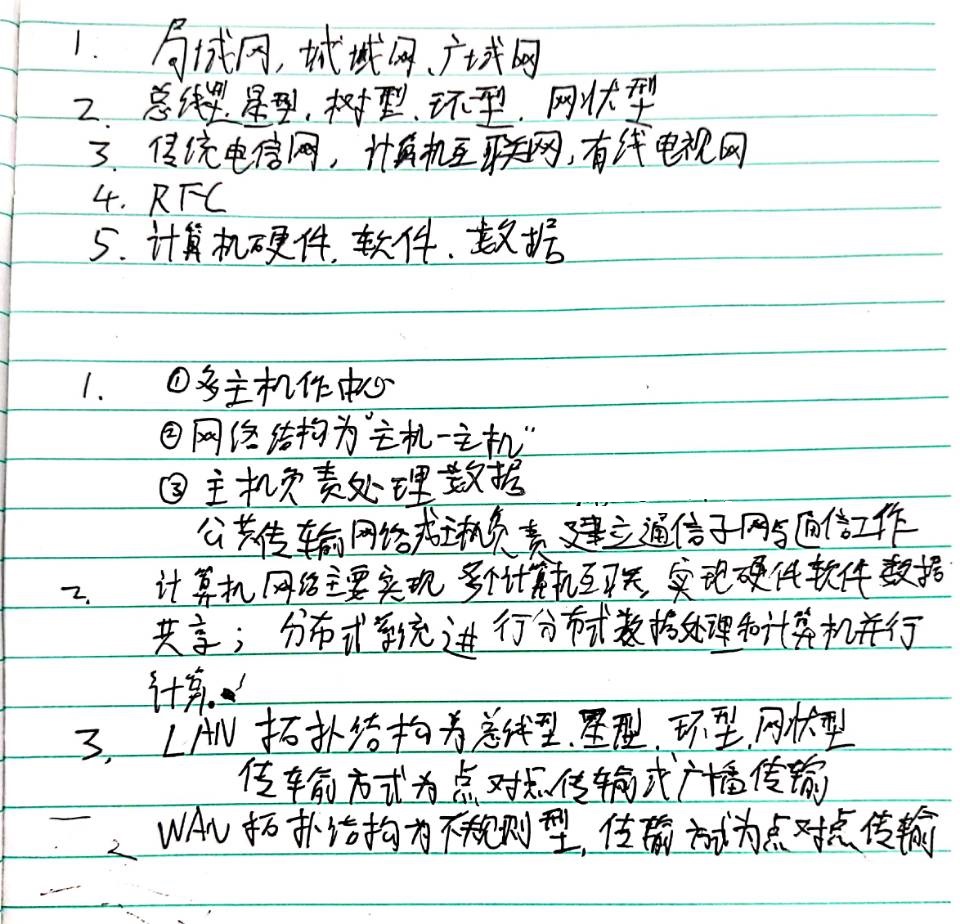 1. 局域网,城域网、广域网
2. 总线型、星型、树型、环型、网状型
3. 传统电信网,计算机互联网,有线电视网
4. RFC
5. 计算机硬件、软件、数据
1. ①多主机作中心
②网络结构为"主机-主机"
③主机负责处理数据
公共传输网络或主机负责建立通信子网与通信工作
2. 计算机网络主要实现多个计算机互联,实现硬件软件数据
共享;分布式系统进行分布式数据处理和计算机并行
计算。
3. LAN拓扑结构为总线型、星型、环型、网状型
传输方式为点对点传输或广播传输
WAN拓扑结构为不规则型,传输方式为点对点传输